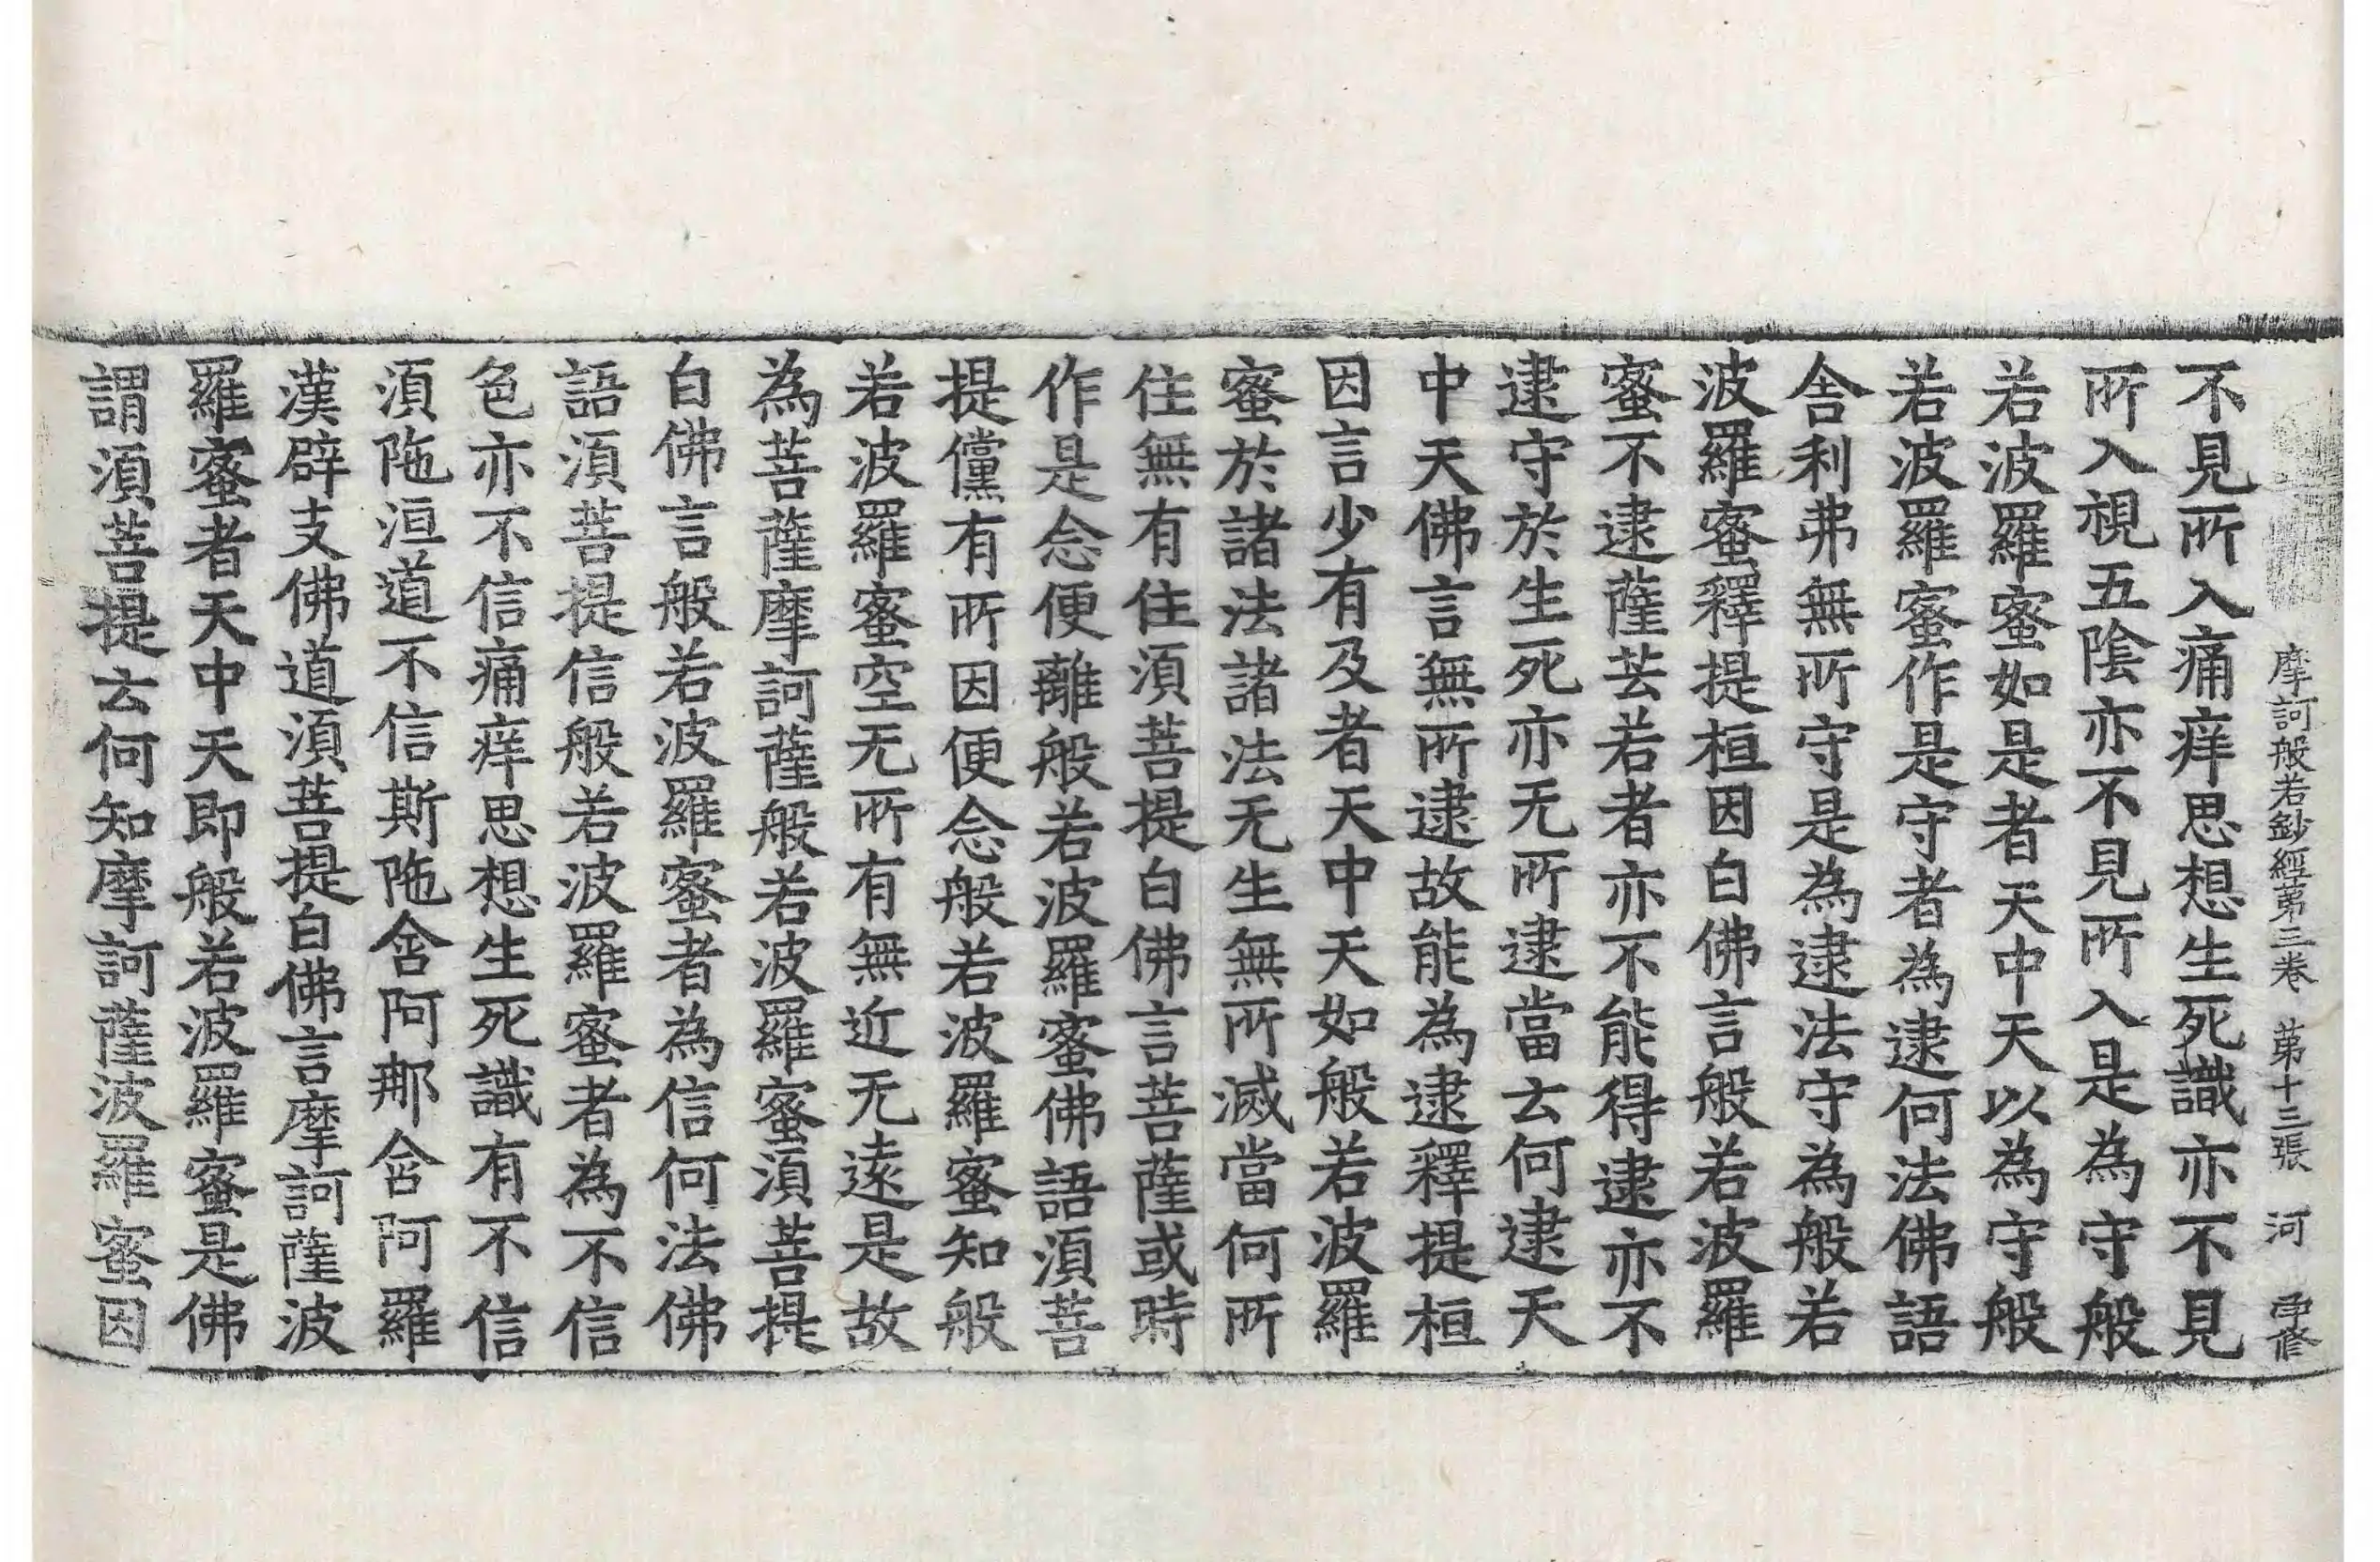 摩訶般若鈔經第三卷 第十三張 河
不見所入痛痒思想生死識亦不見
所入視五陰亦不見所入是為守般
若波羅蜜如是者天中天以為守般
若波羅蜜作是守者為逮何法佛語
舍利弗無所守是為逮法守為般若
波羅蜜釋提桓因白佛言般若波羅
蜜不逮薩芸若者亦不能得逮亦不
逮守於生死亦无所逮當云何逮天
中天佛言無所逮故能為逮釋提桓
因言少有及者天中天如般若波羅
蜜於諸法諸法无生無所滅當何所
住無有住須菩提白佛言菩薩或時
作是念便離般若波羅蜜佛語須菩
提儻有所因便念般若波羅蜜知般
若波羅蜜空无所有無近无遠是故
為菩薩摩訶薩般若波羅蜜須菩提
白佛言般若波羅蜜者為信何法佛
語須菩提信般若波羅蜜者為不信
色亦不信痛痒思想生死識有不信
須陁洹道不信斯陁含阿那含阿羅
漢辟支佛道須菩提白佛言摩訶薩波
羅蜜者天中天即般若波羅蜜是佛
謂須菩提云何知摩訶薩波羅蜜因